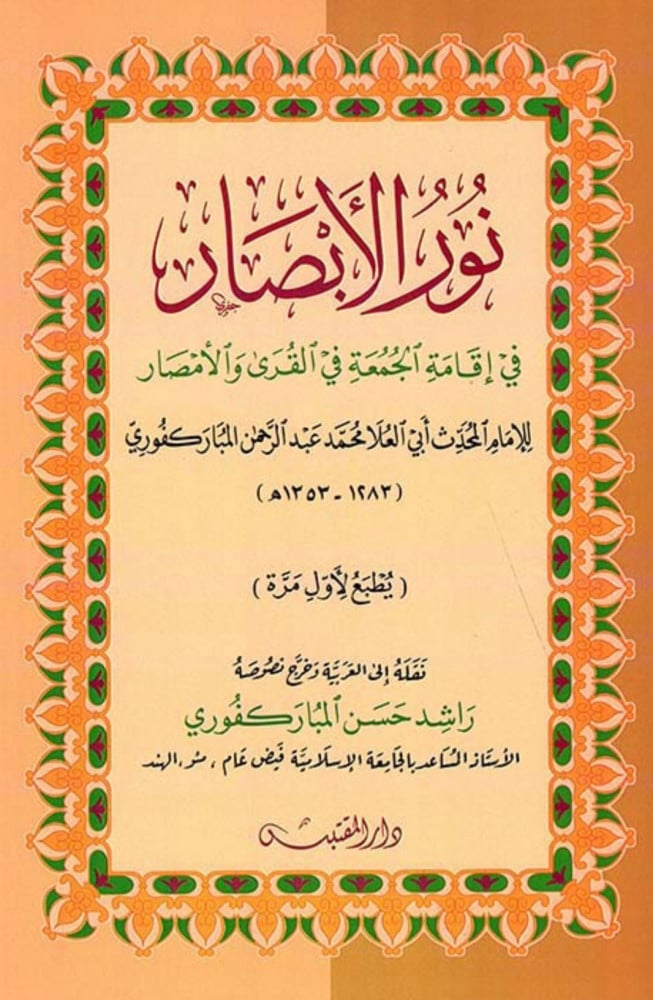 نُورُ الأَبْصَار
فِي إِقَامَةِ الجُمُعَةِ فِي القُرَى وَالأَمْصَار
لِلإِمَامِ المُحَدِّث أَبِي العُلَا مُحَمَّد عَبْد الرَّحْمٰن المُبَارَكفُورِيّ
(١٢٨٣ - ١٣٥٣ه)
(يُطْبَعُ لِأَوَّلِ مَرَّة)
نَقَلَهُ إِلى العَرَبِيَّة وَخَرَّجَ نصُوصَهُ
رَاشِد حَسَن المُبَارَكفُوري
الأستَاذ المُسَاعد بالجَامعَة الإِسلَاميَّة فَيض عَام ، مئو ، الهند
دار المقتبس